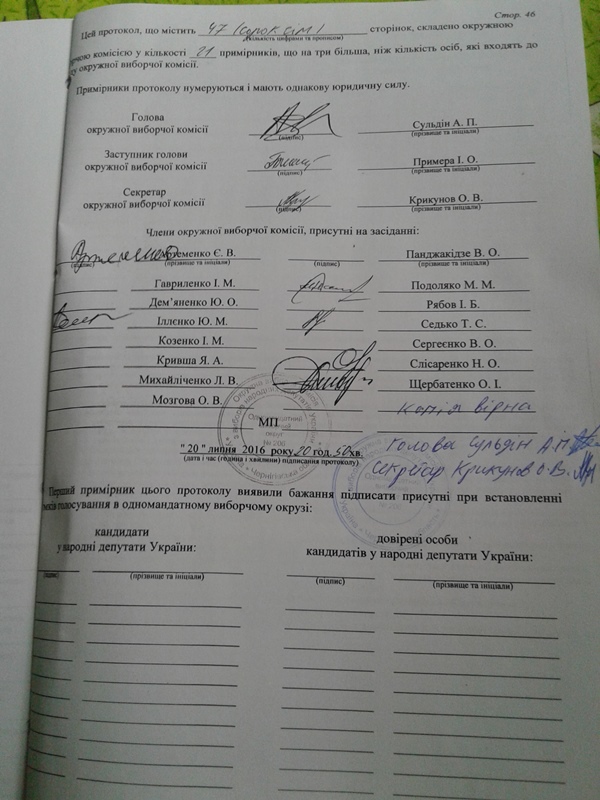 Стор. 46
Цей протокол, що містить 47 (сорок сім) сторінок, складено окружною
(кількість цифрами та прописом)
комісією у кількості 21 примірників, що на три більша, ніж кількість осіб, які входять до
окружної виборчої комісії.
Примірники протоколу нумеруються і мають однакову юридичну силу.
Голова
окружної виборчої комісії Сульдін А. П.
(підпис) (прізвище та ініціали)
Заступник голови
окружної виборчої комісії Примера І. О.
(підпис) (прізвище та ініціали)
Секретар
окружної виборчої комісії Крикунов О. В.
(підпис) (прізвище та ініціали)
Члени окружної виборчої комісії, присутні на засіданні:
Є. В. Панджакідзе В. О.
(підпис) (прізвище та ініціали) (підпис) (прізвище та ініціали)
Гавриленко І. М. Подоляко М. М.
Дем’яненко Ю. О. Рябов І. Б.
Іллєнко Ю. М. Седько Т. С.
Козенко І. М. Сергеєнко В. О.
Кривша Я. А. Слісаренко Н. О.
Михайліченко Л. В. Щербатенко О. І.
Мозгова О. В. Копія вірна
МП
Голова Сульдін А.П.
"20" липня 2016 року 20 год. 50 хв.
(дата і час (година і хвилини) підписання протоколу)
Секретар Крикунов О.В.
Перший примірник цього протоколу виявили бажання підписати присутні при встановленні
голосування в одномандатному виборчому окрузі:
кандидати
у народні депутати України:
довірені особи
кандидатів у народні депутати України:
(прізвище та ініціали) (підпис) (прізвище та ініціали)